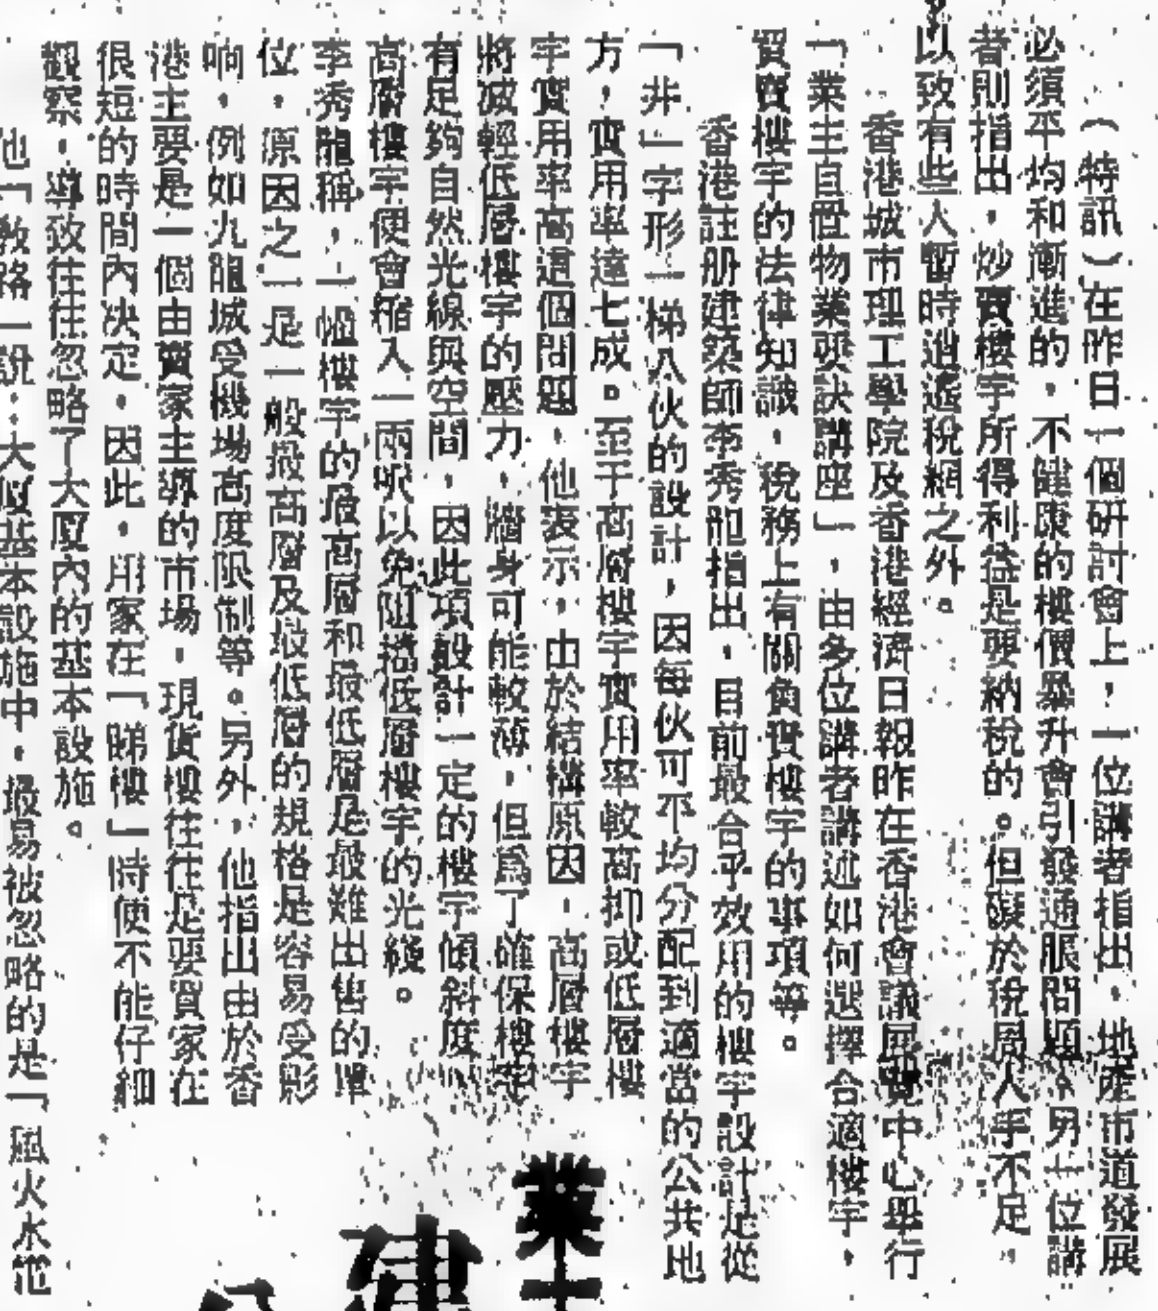 （特訊）在昨日一個研討會上，一位講者指出，地產市道發展
必須平均和漸進的，不健康的樓價暴升會引發通脹問題，另一位講
者則指出，炒賣樓宇所得利益是要納稅的。但礙於稅局人手不足，
以致有些人暫時逍遙稅網之外。
香港城市理工學院及香港經濟日報昨在香港會議展覽中心舉行
「業主自置物業要訣講座」，由多位講者講述如何選擇合適樓宇，
買賣樓宇的法律知識，稅務上有關負責樓宇的事項等。
香港註册建築師李秀龍指出，目前最合乎效用的樓宇設計是從
「非」字形一梯八伙的設計，因每伙可平均分配到適當的公共地
方，實用率達七成。至于高層樓宇實用率較高抑或低層樓
宇實用率高這個問題，他表示，由於結構原因，高層樓宇
將減輕低層樓宇的壓力，牆身可能較薄，但爲了確保樓宇
有足夠自然光線與空間，因此項設計一定的樓宇傾斜度
高層樓宇便會縮入一兩呎以免阻擋低層樓宇的光綫。
李秀龍稱，一幢樓宇的最高層和最低層是最難出售的單
位，原因之一是一般最高層及最低層的規格是容易受影
响，例如九龍城受機場高度限制等。另外，他指出由於香
港主要是一個由賣家主導的市場，現貨樓往往是要買家在
很短的時間內决定，因此，用家在「睇樓」時便不能仔細
觀察，導致往往忽略了大厦內的基本設施。
他「教路」說：大厦基本設施中，最易被忽略的是「風火水電
業主
建